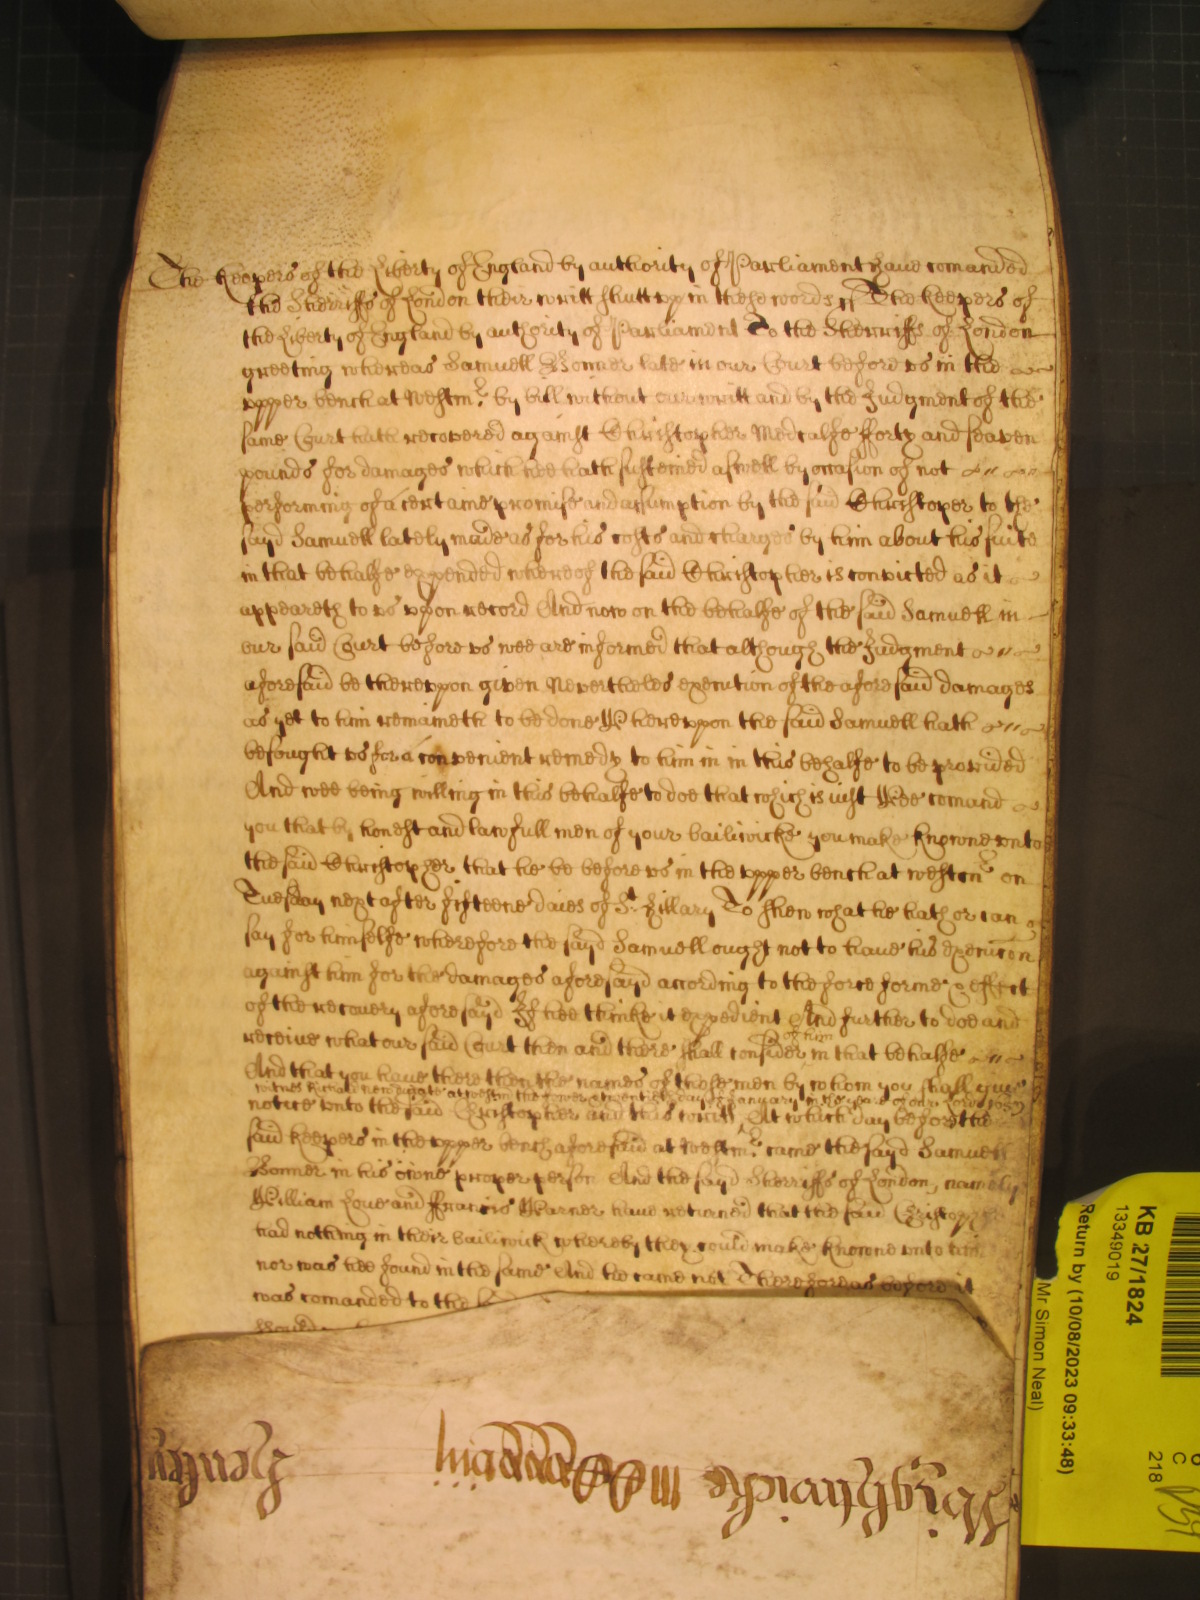 The Keepers of the Liberty of England by authority of Parliament have comanded
the Sherriffs of London their writt shutt up in these words ss The Keepers of
the Liberty of England by authority of Parliament To the Sherriffs of London
greeting whereas Samuell Bonner late in our Court before us in the
upper bench at Westmr by bill without our writt and by the Judgment of the
same Court hath recovered against Christopher Medcalfe fforty and seaven
pounds for damages which hee hath susteined aswell by occasion of not
performing of a certaine promise and assumption by the said Christoper to the
sayd Samuell lately made as for his costs and charges by him about his suite
in that behalfe expended whereof the said Christopher is convicted as it
appeareth to us upon record And now on the behalfe of the said Samuell in
our said Court before us wee are informed that although the Judgment
aforesaid be thereupon given Nevertheles execution of the aforesaid damages
as yet to him remaineth to be done Whereupon the said Samuell hath
besought us for a convenient remedy to him in in this behalfe to be provided
And wee being willing in this behalfe to doe that which is iust Wee comand
you that by honest and lawfull men of your bailiwicke you make knowne unto
the said Christopher that he be before us in the upper bench at westmr on
Tuesday next after fifteene daies of St Hillary To shew what he hath or can
say for himselfe wherefore the sayd Samuell ought not to have his execucon
against him for the damages aforesayd according to the force forme & effect
of the recovery aforesayd If hee thinke it expedient And further to doe and
receive what our said Court then and there shall consider of him in that behalfe
And that you have there then the names of those men by whom you shall give
witnes Richard Newdigate at westm the twentieth day of January in the yeare of our Lord 1659
notice unto the said Christopher and this writt At which day before the
said Keepers in the upper bench aforesaid at Westmr came the sayd Samuell
Bonner in his owne proper person And the sayd Sherriffs of London, namely
William Love and ffrancis Warner have returned that the said Christopher
had nothing in their bailiwick whereby they could make knowne unto him
nor was hee found in the same And he came not Therefore as before it
was comanded to the
Wrightwicke